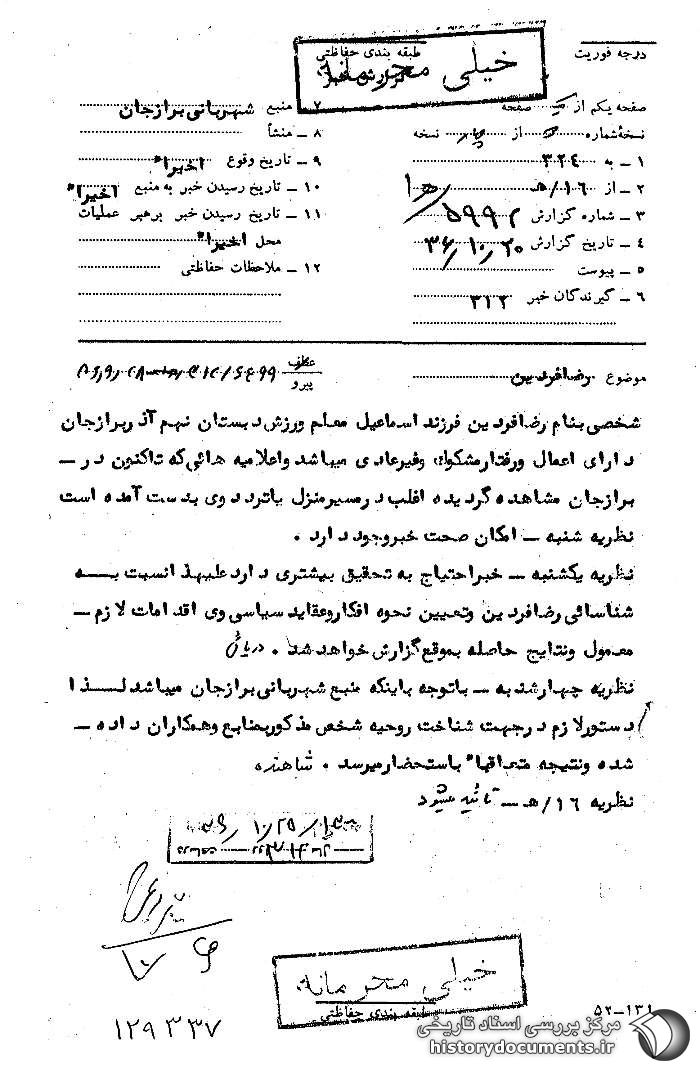 درجه فوریت
طبقه بندی حفاظتی
خیلی محرمانه
گزارش خبر
صفحه یکم از یک صفحه
نسخهٔ شماره از چهار نسخه
۱ – به ۳۲۴
۲ – از ۱۶/هـ
۳ – شماره گزارش ۵۹۹۲/هـ۱
۴ – تاریخ گزارش ۳۶/۱۰/۲۰
۵ – پیوست
۶ – گیرندگان خبر ۳۱۲
۷ – منبع شهربانی برازجان
۸ – منشأ
۹ – تاریخ وقوع اخیراً
۱۰ – تاریخ رسیدن خبر به منبع اخیراً
۱۱ – تاریخ رسیدن خبر برهبر عملیات
محل اخیراً
۱۲ – ملاحظات حفاظتی
موضوع رضا فردین
عطف
پیرو
شخصی بنام رضا فردین فرزند اسماعیل معلم ورزش دبستان نهم آذر برازجان
دارای اعمال ورفتار مشکوک وغیرعادی میباشد واعلامیه هائی که تاکنون در –
برازجان مشاهده گردیده اغلب در مسیر منزل یا تردد وی بدست آمده است
نظریه شنبه – امکان صحت خبر وجود دارد .
نظریه یکشنبه – خبر احتیاج به تحقیق بیشتری دارد علیهذا نسبت به
شناسائی رضا فردین وتعیین نحوه افکار وعقاید سیاسی وی اقدامات لازم –
معمول ونتایج حاصله بموقع گزارش خواهد شد .
نظریه چهارشنبه – باتوجه باینکه منبع شهربانی برازجان میباشد لذا
دستور لازم در جهت شناخت روحیه شخص مذکور بمنابع وهمکاران داده –
شده ونتیجه متعاقباً باستحضار میرسد . شاهنده
نظریه ۱۶/هـ – تائید میشود
خیلی محرمانه
طبقه بندی حفاظتی
۱۲۹۳۳۷
۵۲–۱۳۱
مرکز بررسی اسناد تاریخی
historydocuments.ir